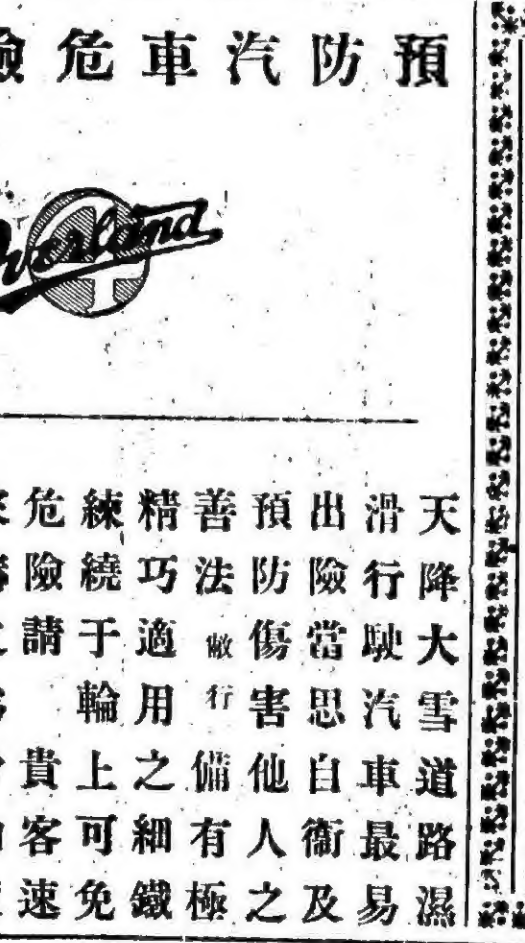 預防汽車危險
Overland
天降大雪道路濕
滑行駛汽車最易
出險當思自衞及
預防傷害他人之
善法敝行備有極
精巧適用之細鐵
練繞于輪上可免
危險請 貴客速